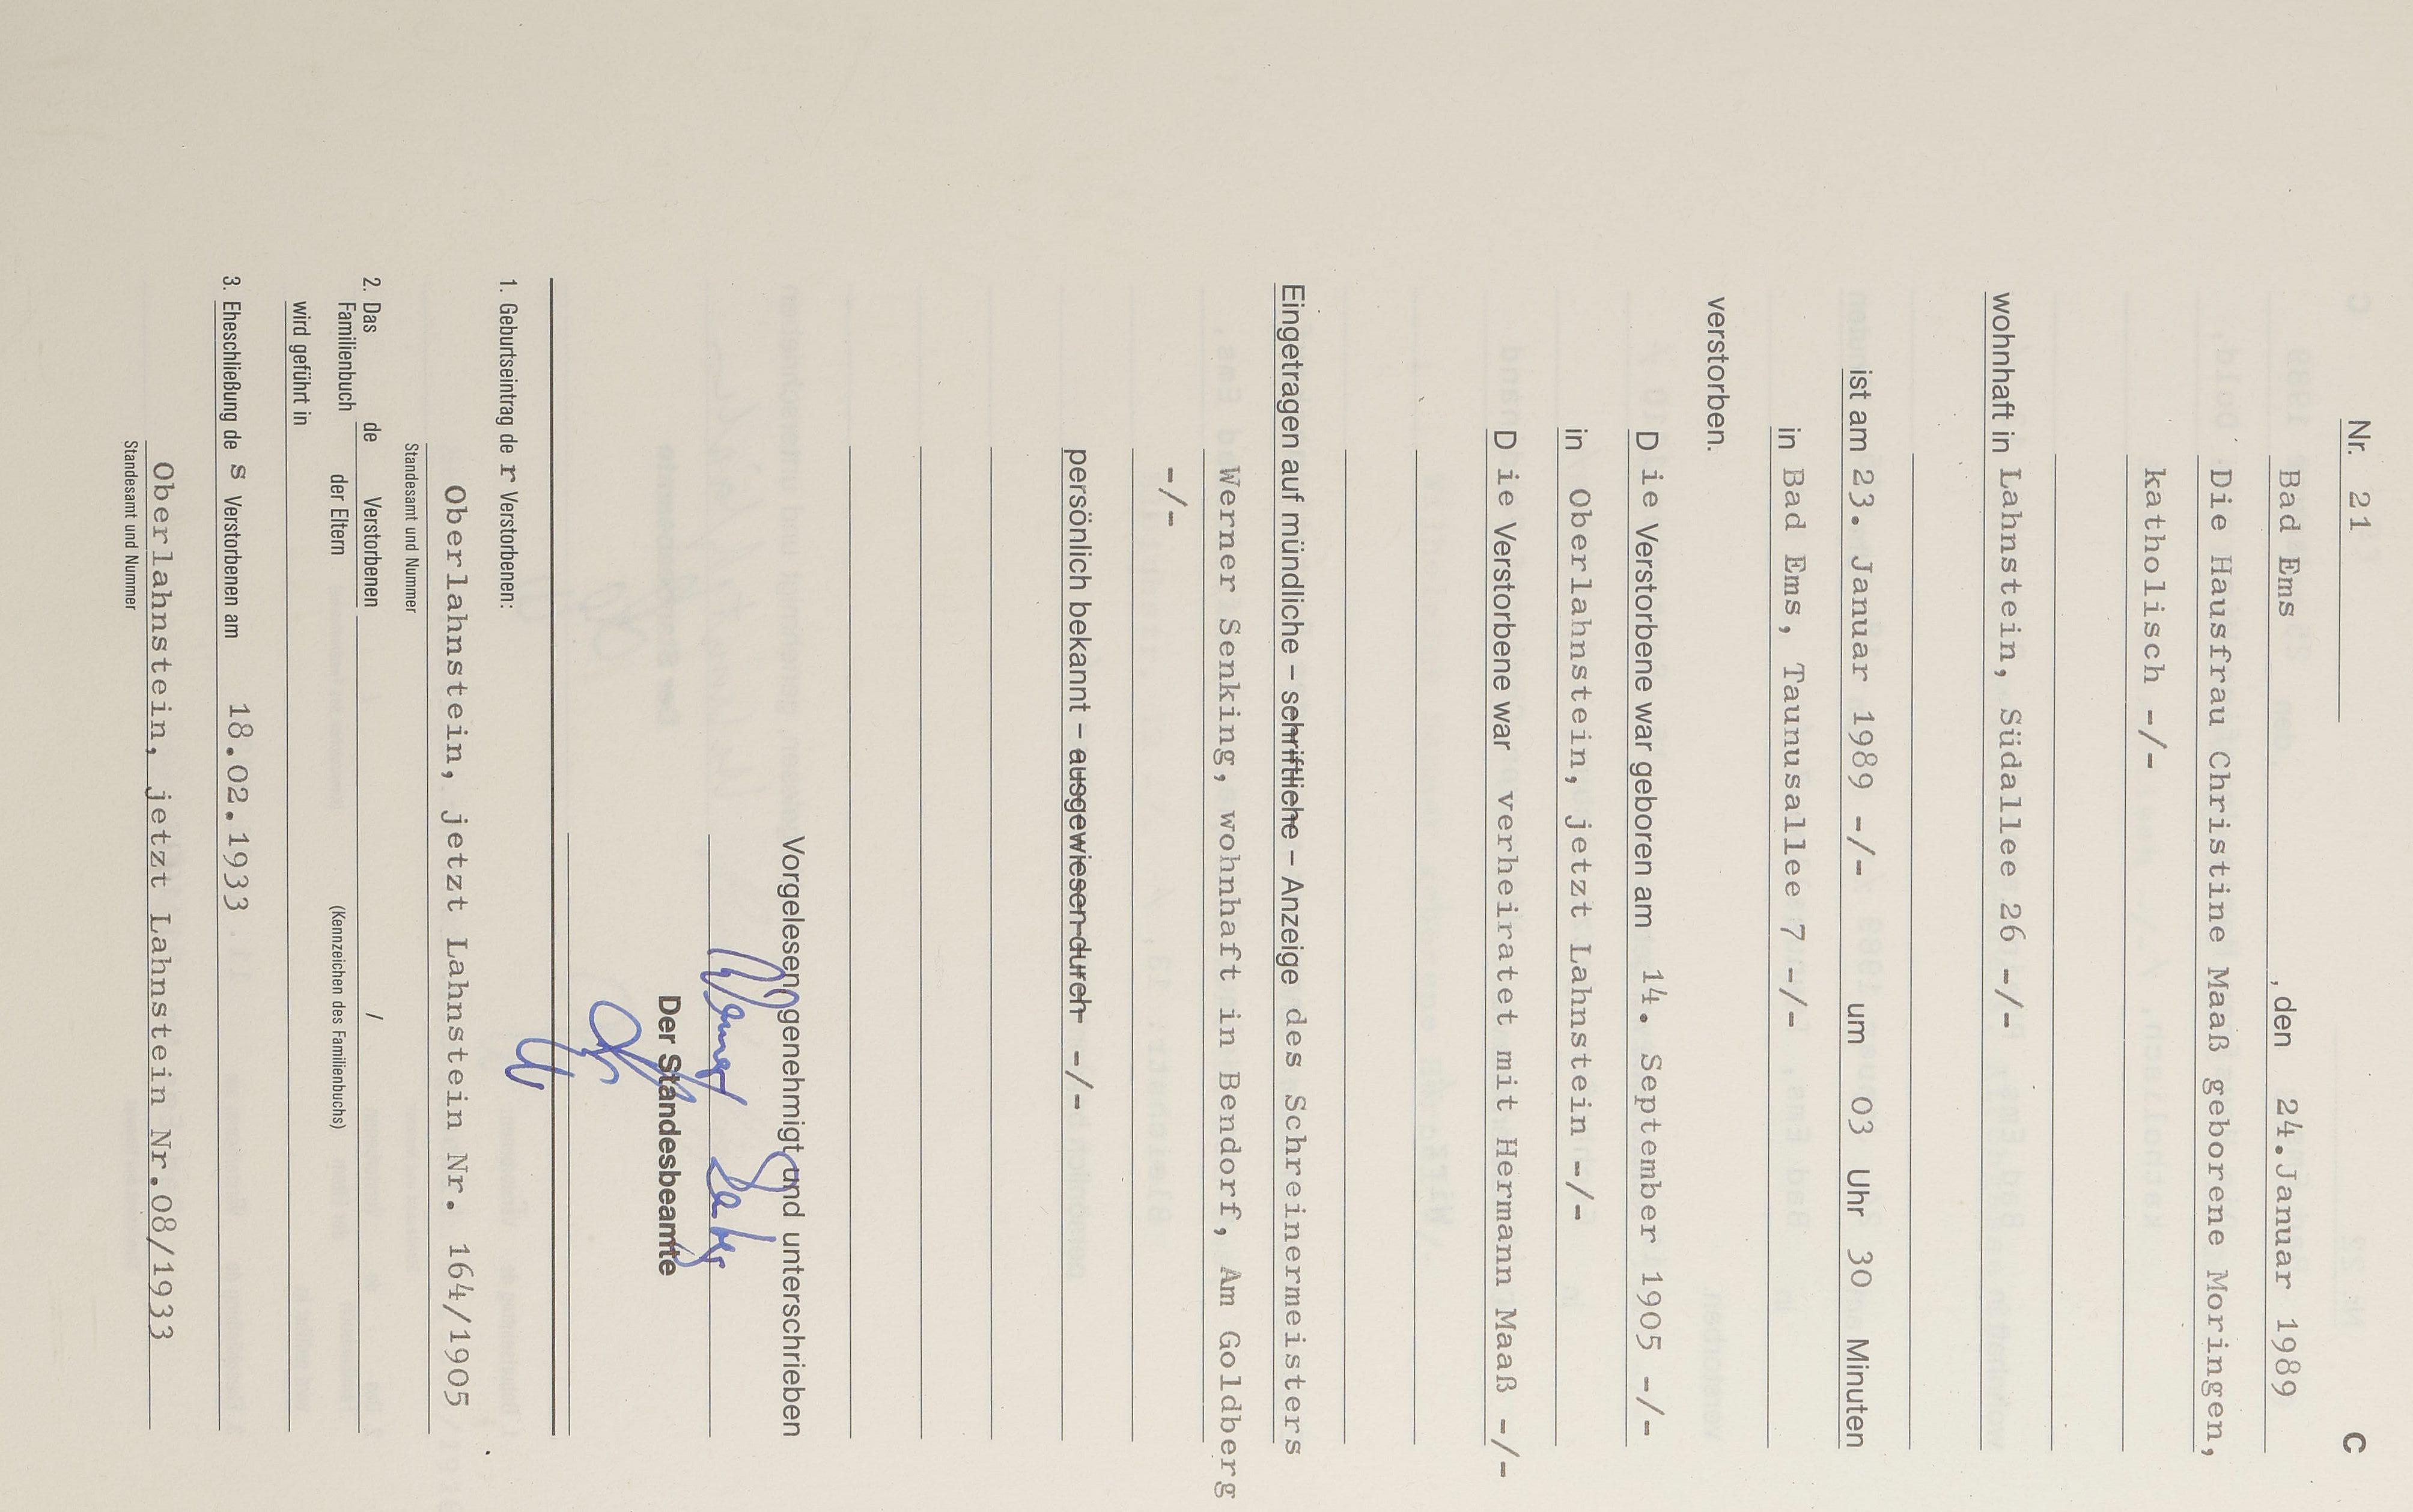 C
Nr. 21
Bad Ems, den 24.Januar 1989
Die Hausfrau Christine Maaß geborene Moringen,
katholisch -/-
wohnhaft in Lahnstein, Südallee 26 -/-
ist am 23. Januar 1989 -/- um 03 Uhr 30 Minuten
in Bad Ems, Taunusallee 7 -/-
verstorben.
D ie Verstorbene war geboren am 14. September 1905 -/-
in Oberlahnstein, jetzt Lahnstein -/-
D ie Verstorbene war verheiratet mit Hermann Maaß -/-
Eingetragen auf mündliche – schriftliche – Anzeige des Schreinermeisters
Werner Senking, wohnhaft in Bendorf, Am Goldberg
-/-
persönlich bekannt – ausgewiesen durch -/-
Vorgelesen, genehmigt und unterschrieben
Werner
Der Standesbeamte
1. Geburtseintrag de r Verstorbenen:
Oberlahnstein, jetzt Lahnstein Nr. 164/1905
Standesamt und Nummer
2. Das Familienbuch de Verstorbenen /
der Eltern (Kennzeichen des Familienbuchs)
wird geführt in
3. Eheschließung de s Verstorbenen am 18.02.1933
Oberlahnstein, jetzt Lahnstein Nr.08/1933
Standesamt und Nummer